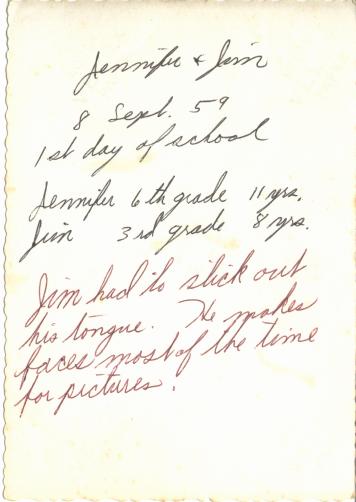 Jennifer & Jim
8 Sept. 59
1st day of school
Jennifer 6th grade 11 yrs.
Jim 3rd grade 8 yrs.
Jim had to stick out
his tongue. He makes
faces most of the time
for pictures.